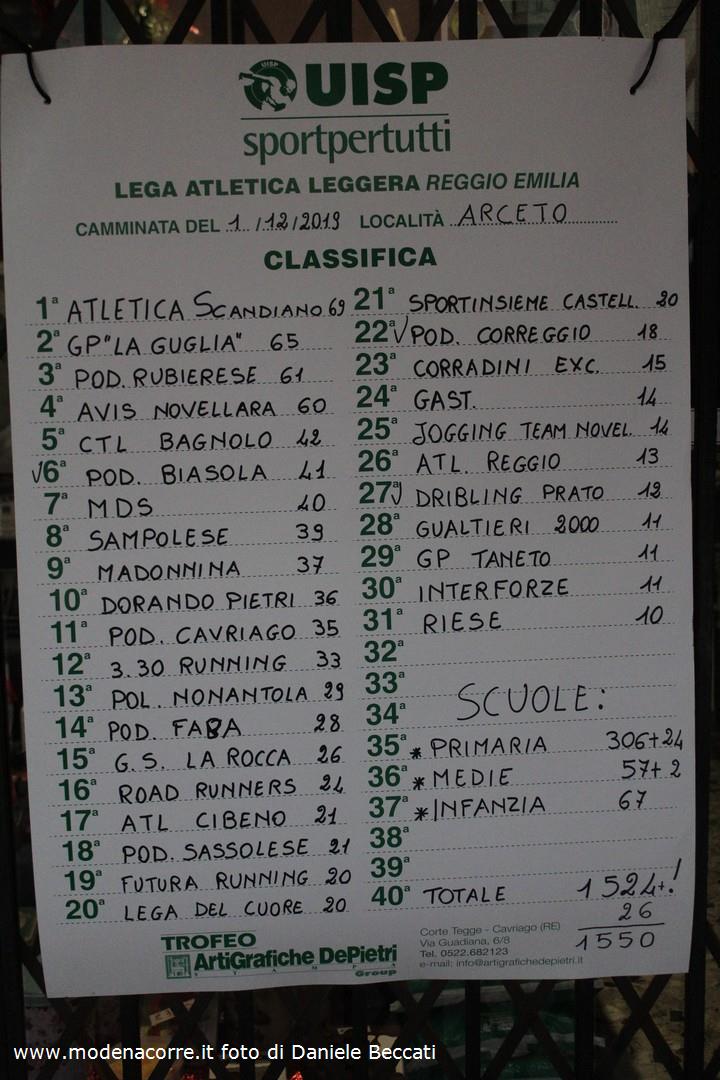 UISP
UISP
sportpertutti
LEGA ATLETICA LEGGERA REGGIO EMILIA
CAMMINATA DEL 1 /12/2019 LOCALITÀ ARCETO
CLASSIFICA
1ª ATLETICA SCANDIANO 69
2ª GP "LA GUGLIA" 65
3ª POD. RUBIERESE 61
4ª AVIS NOVELLARA 60
5ª CTL BAGNOLO 42
√6ª POD. BIASOLA 41
7ª MDS 40
8ª SAMPOLESE 39
9ª MADONNINA 37
10ª DORANDO PIETRI 36
11ª POD. CAVRIAGO 35
12ª 3.30 RUNNING 33
13ª POL. NONANTOLA 29
14ª POD. FABA 28
15ª G.S. LA ROCCA 26
16ª ROAD RUNNERS 24
17ª ATL CIBENO 21
18ª POD. SASSOLESE 21
19ª FUTURA RUNNING 20
20ª LEGA DEL CUORE 20
21ª SPORTINSIEME CASTELL. 20
22ª √ POD. CORREGGIO 18
23ª CORRADINI EXC. 15
24ª GAST. 14
25ª JOGGING TEAM NOVEL. 14
26ª ATL. REGGIO 13
27ª √ DRIBLING PRATO 12
28ª GUALTIERI 2000 11
29ª GP TANETO 11
30ª INTERFORZE 11
31ª RIESE 10
32ª
33ª
34ª SCUOLE:
35ª * PRIMARIA 306+24
36ª * MEDIE 57+2
37ª * INFANZIA 67
38ª
39ª
40ª TOTALE 1524+!
26
1550
TROFEO
ArtiGrafiche DePietri
STAMPA
Group
Corte Tegge - Cavriago (RE)
Via Guadiana, 6/8
Tel. 0522.682123
e-mail: info@artigrafichedepietri.it
www.modenacorre.it foto di Daniele Beccati